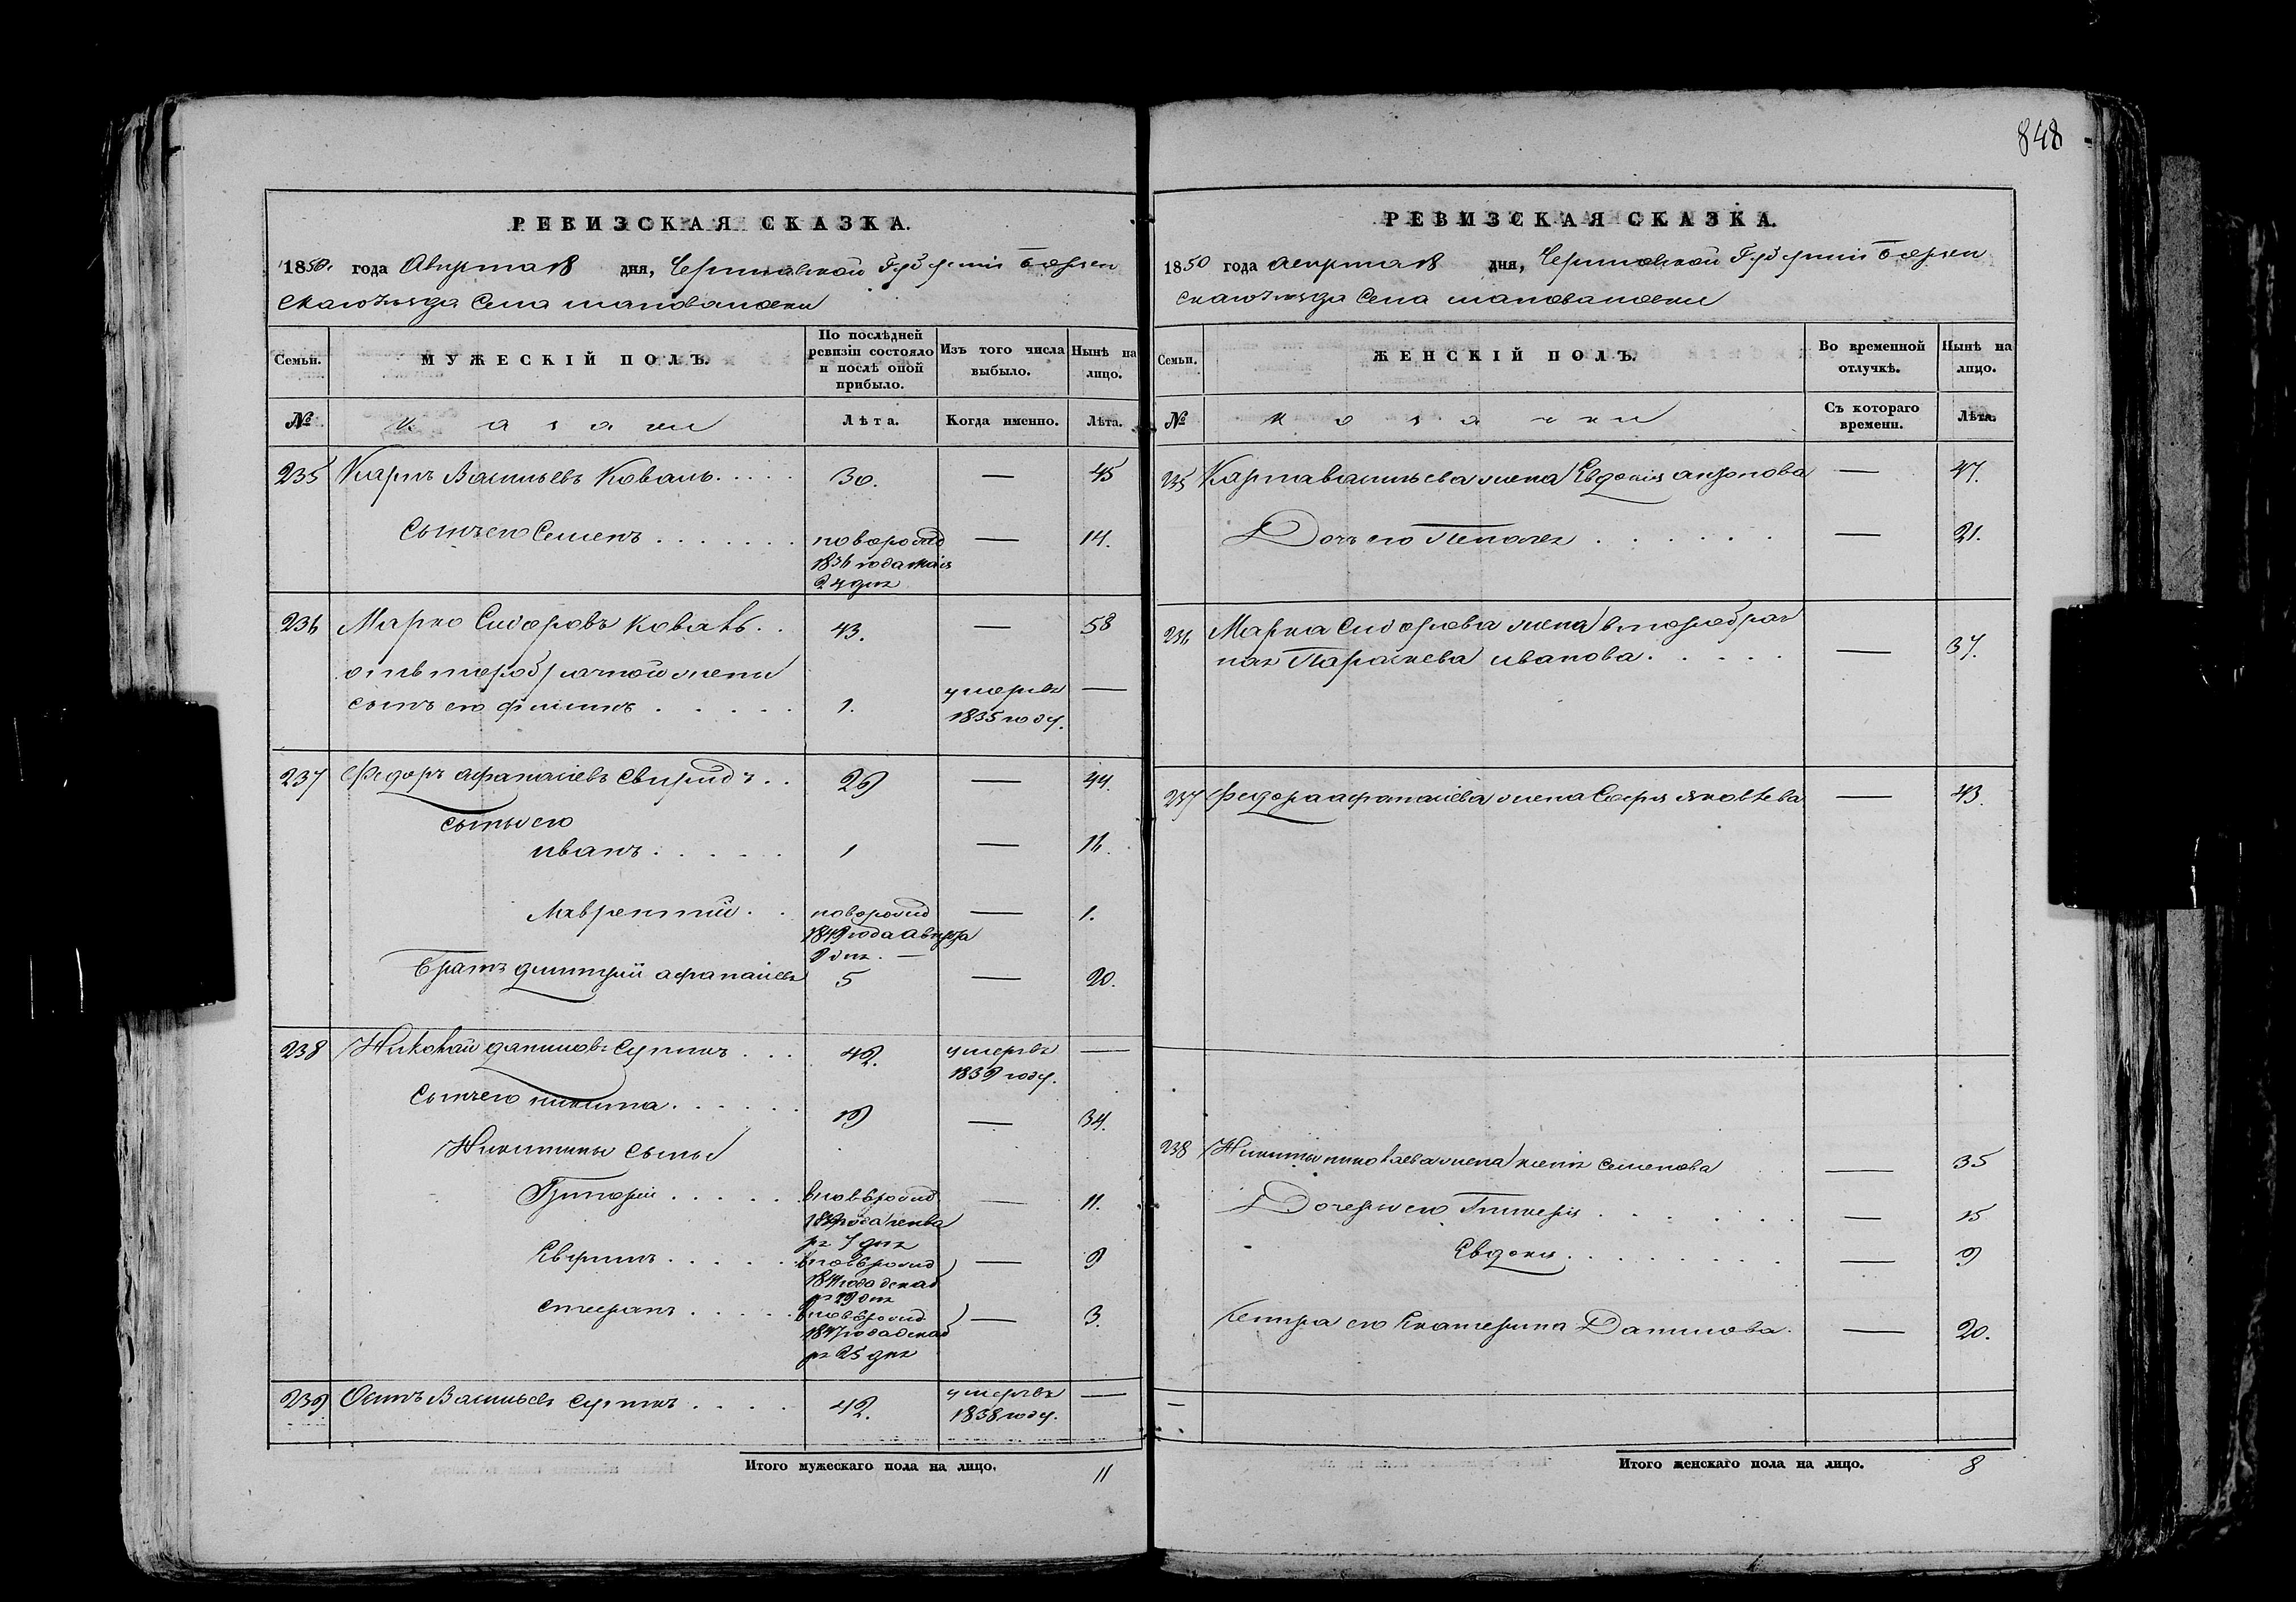 848
РЕВИЗСКАЯ СКАЗКА.
1850 года Августа 18 дня, Черниговской Губернии Борзен
скаго уезда Села Шаповаловки
Семьи.
МУЖЕСКІЙ ПОЛЪ.
По послѣдней ревизіи состояло и послѣ оной прибыло.
Изъ того числа выбыло.
Нынѣ на лицо.
№
Казаки
Лѣта.
Когда именно.
Лѣта.
235 Карпъ Васильевъ Коваль 30. — 45
Сынъ его Семенъ новорожд — 14.
1836 года маія
24 дня
236 Марко Сидоровъ Коваль 43. — 58
отъ второбрачной жены
сынъ его Филипъ 1. умеръ въ —
1835 году.
237 Федоръ Афанасіевъ Свирид 29 — 44.
сыны его
Иванъ 1 — 16.
Лаврентий новорожд — 1.
1849 года Августа
9 дня. —
Братъ Дмитрий Афанасиевъ 5 — 20.
238 Николай Даниловъ Супрунъ 42. умеръ въ —
1839 году.
Сынъ его Никита 19 — 34.
Никитины сыны
Григорий новорожд — 11.
1839 года генва
ря 7 дня
новорожд — 9
1841 года декаб
ря 29 дня
Стефанъ новорожд — 3.
1847 года декаб
ря 25 дня
239 Осипъ Васильевъ 42. умеръ въ —
1838 году.
Итого мужескаго пола на лицо. 11
РЕВИЗСКАЯ СКАЗКА.
1850 года Августа 18 дня, Черниговской Губернии Борзен
скаго уезда Села Шаповаловки
Семьи.
ЖЕНСКІЙ ПОЛЪ.
Во временной отлучкѣ.
Нынѣ на лицо.
№
Казачки
Съ котораго времени.
Лѣта.
235 Карпа Васильева жена Евдокия — 47.
Дочь его Пелагея — 21.
236 Марка Сидорова жена второбрач
ная Параскева Иванова — 37.
237 Федора Афанасіева жена Софья Яковлева — 43.
238 Никиты Николаева жена Ксения Семенова — 35
Дочери его Гликерия — 15
Евдокия — 9
Сестра его Екатерина Данилова — 20.
—
Итого женскаго пола на лицо. 8